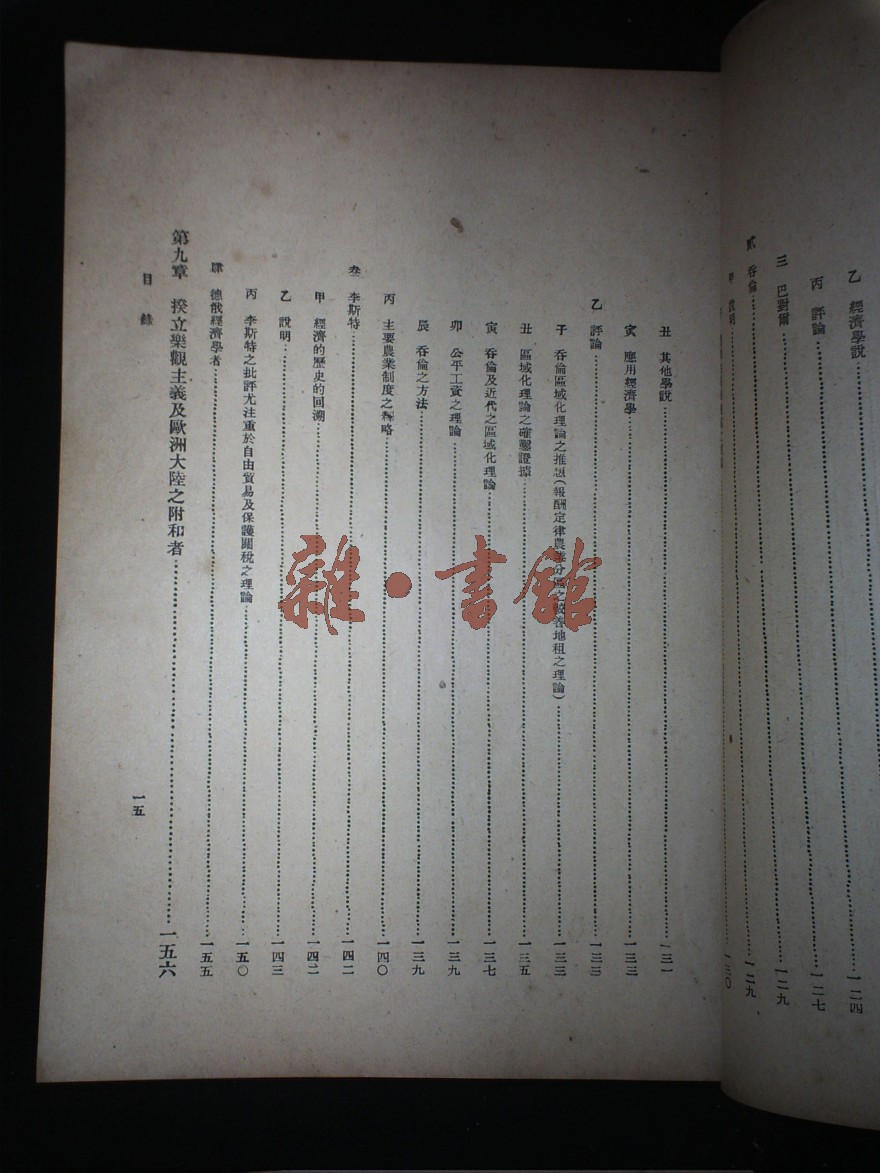 乙 經濟學說……一二四
丙 評論……一二七
三 巴對爾……一二九
貳 吞倫……一二九
甲 說明……一三〇
丑 其他學說……一三一
寅 應用經濟學……一三三
乙 評論……一三三
子 吞倫區域化理論之推(報酬定律農業分區之較善地租之理論)……一三三
丑 區域化理論之確鑿證據……一三五
寅 吞倫及近代之區域化理論……一三七
卯 公平工資之理論……一三九
辰 吞倫之方法……一三九
丙 主要農業制度之略……一四〇
叁 李斯特……一四二
甲 經濟的歷史的回溯……一四二
乙 說明……一四三
丙 李斯特之批評尤注重於自由貿易及保護關稅之理論……一五〇
肆 德俄經濟學者……一五五
第九章 揆立樂觀主義及歐洲大陸之附和者……一五六
目錄
一五
雜·書館